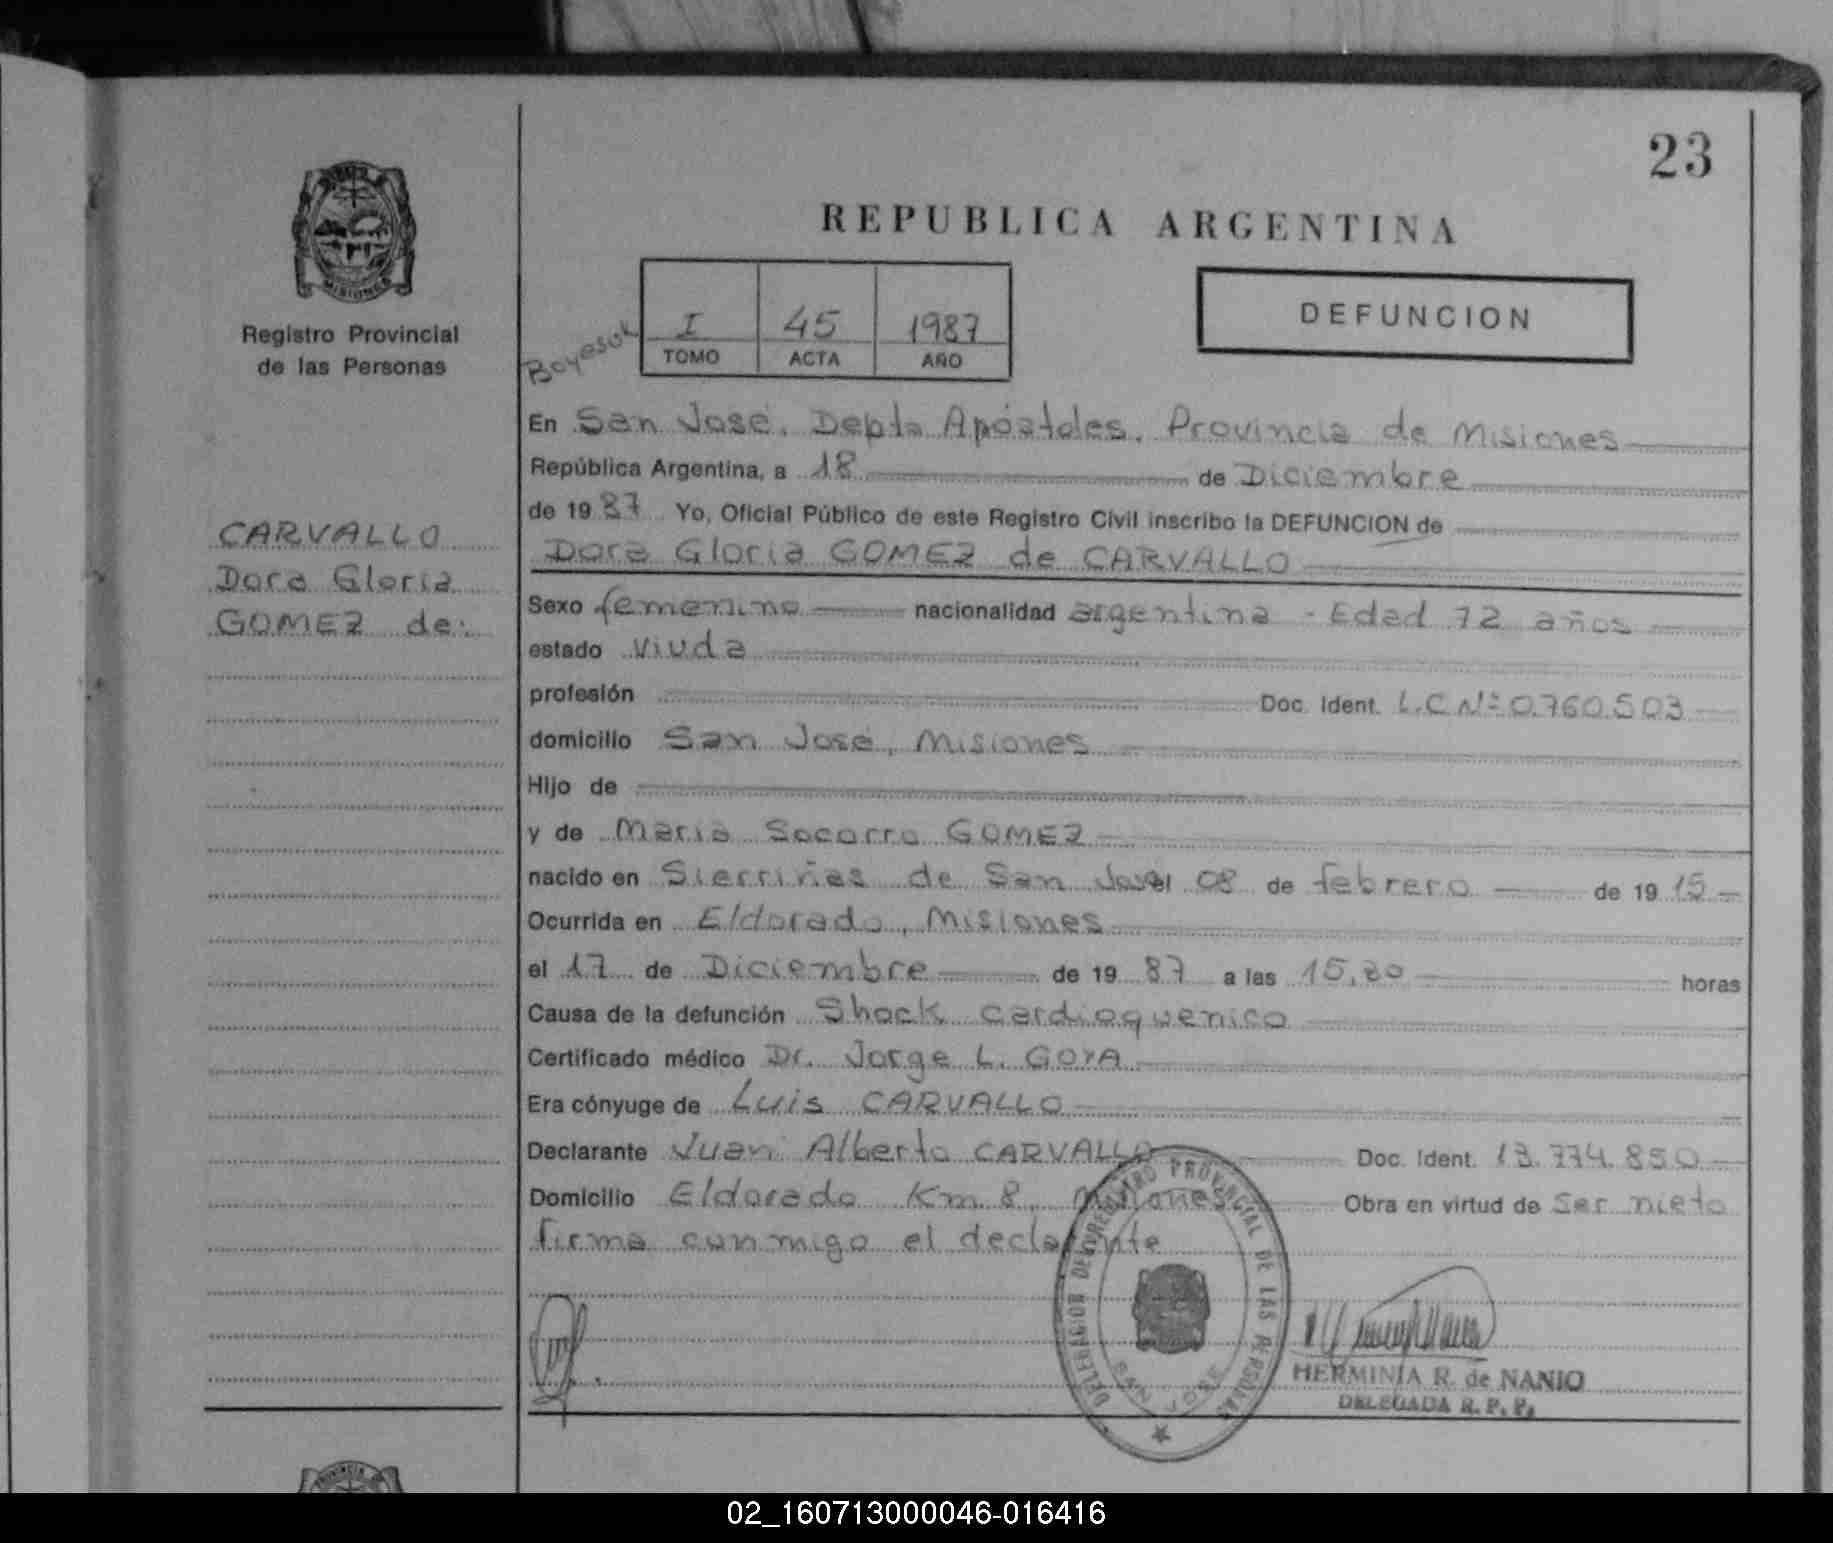 23
REPUBLICA ARGENTINA
MISIONES
Registro Provincial
de las Personas
I 45 1987
TOMO ACTA AÑO
DEFUNCION
En San José. Depto Apóstoles. Provincia de Misiones
República Argentina, a 18 de Diciembre
de 1987 Yo, Oficial Público de este Registro Civil inscribo la DEFUNCION de
Dora Gloria GOMEZ de CARVALLO
CARVALLO
Dora Gloria
GOMEZ de:
Sexo femenino nacionalidad argentina - Edad 72 años
estado viuda
profesión Doc. Ident. L.C Nº 0.760.503
domicilio San José, Misiones
Hijo de
y de Maria Socorro GOMEZ
nacido en Sierriñas de San José el 08 de febrero de 1915
Ocurrida en Eldorado, Misiones
el 17 de Diciembre de 1987 a las horas
Causa de la defunción Shock cardioquenico
Certificado médico Dr. Jorge L. GOYA
Era cónyuge de Luis CARVALLO
Declarante Juan Alberto CARVALLO Doc. Ident. 13.774.850
Domicilio Eldorado Km 8, Misiones Obra en virtud de ser nieto
firma conmigo el declarante
DELEGACION DEL REGISTRO PROVINCIAL DE LAS PERSONAS
SAN JOSE
HERMINIA R. de NANIO
DELEGADA R. P. P.
02_160713000046-016416